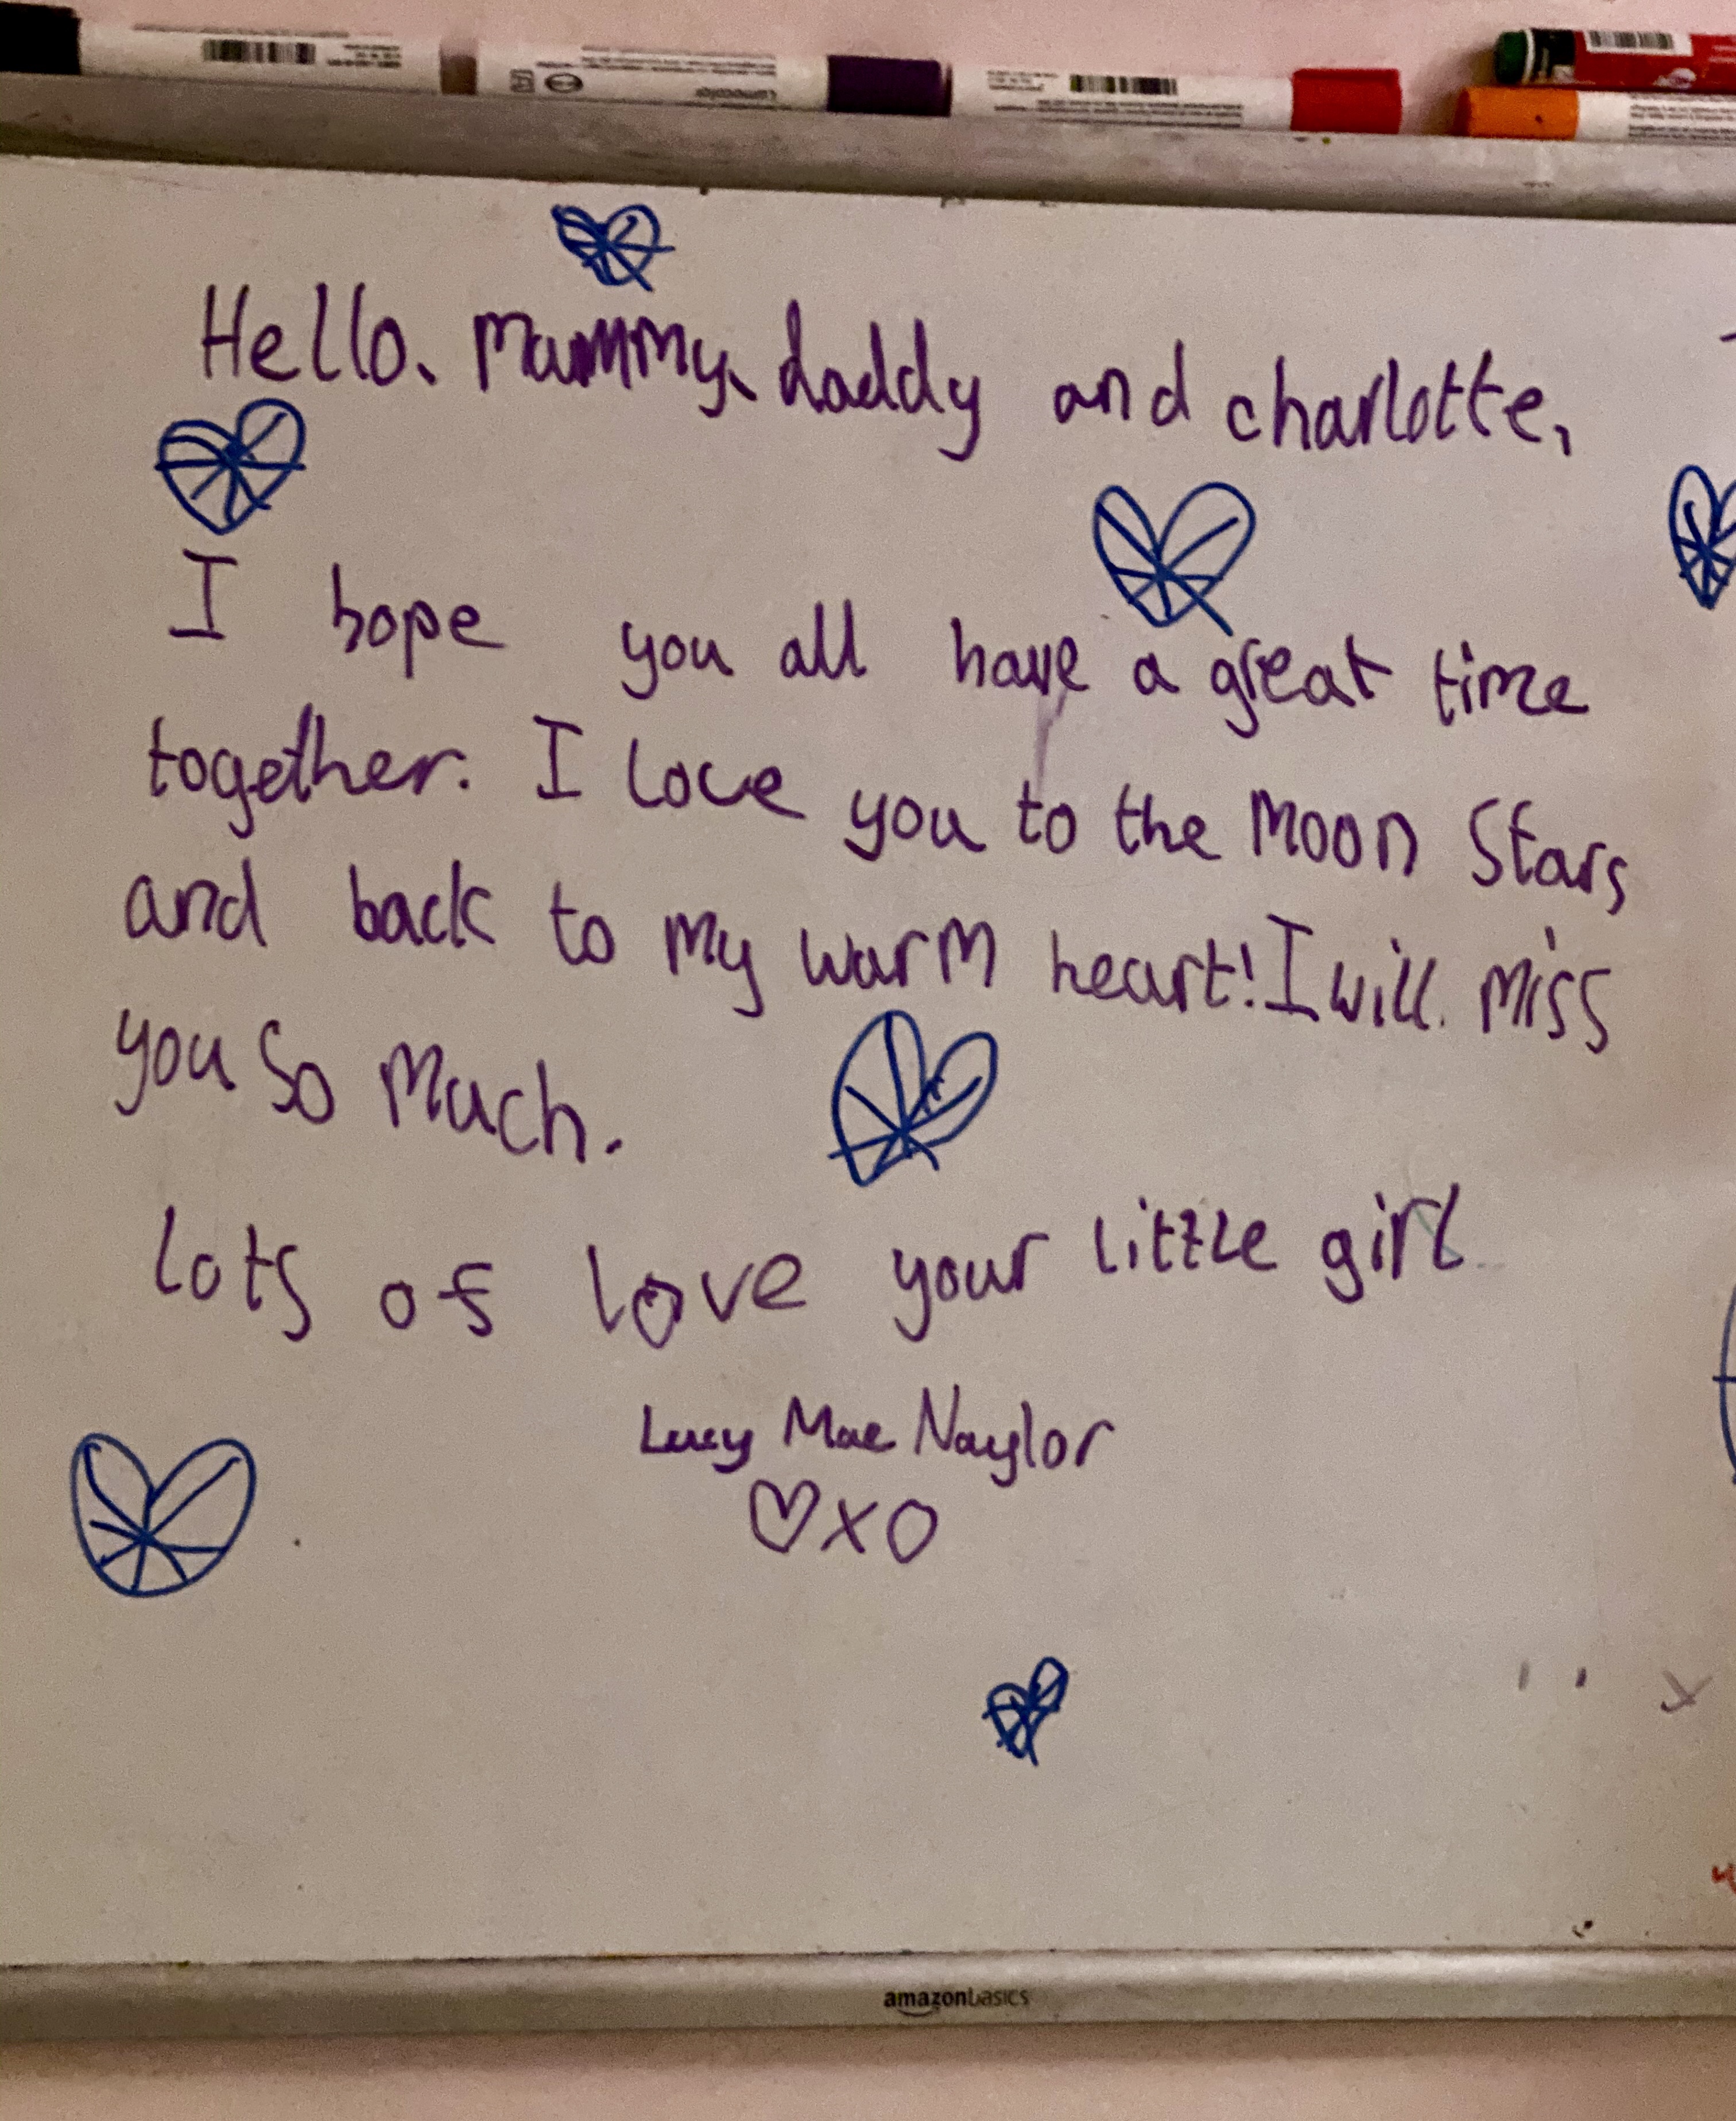 Hello, Mammy, daddy and charlotte,
I hope you all have a great time
together. I love you to the Moon Stars
and back to My warm heart! I will miss
you So Much.
lots of love your little girl
Lucy Mae Naylor
♡XO
amazonbasics